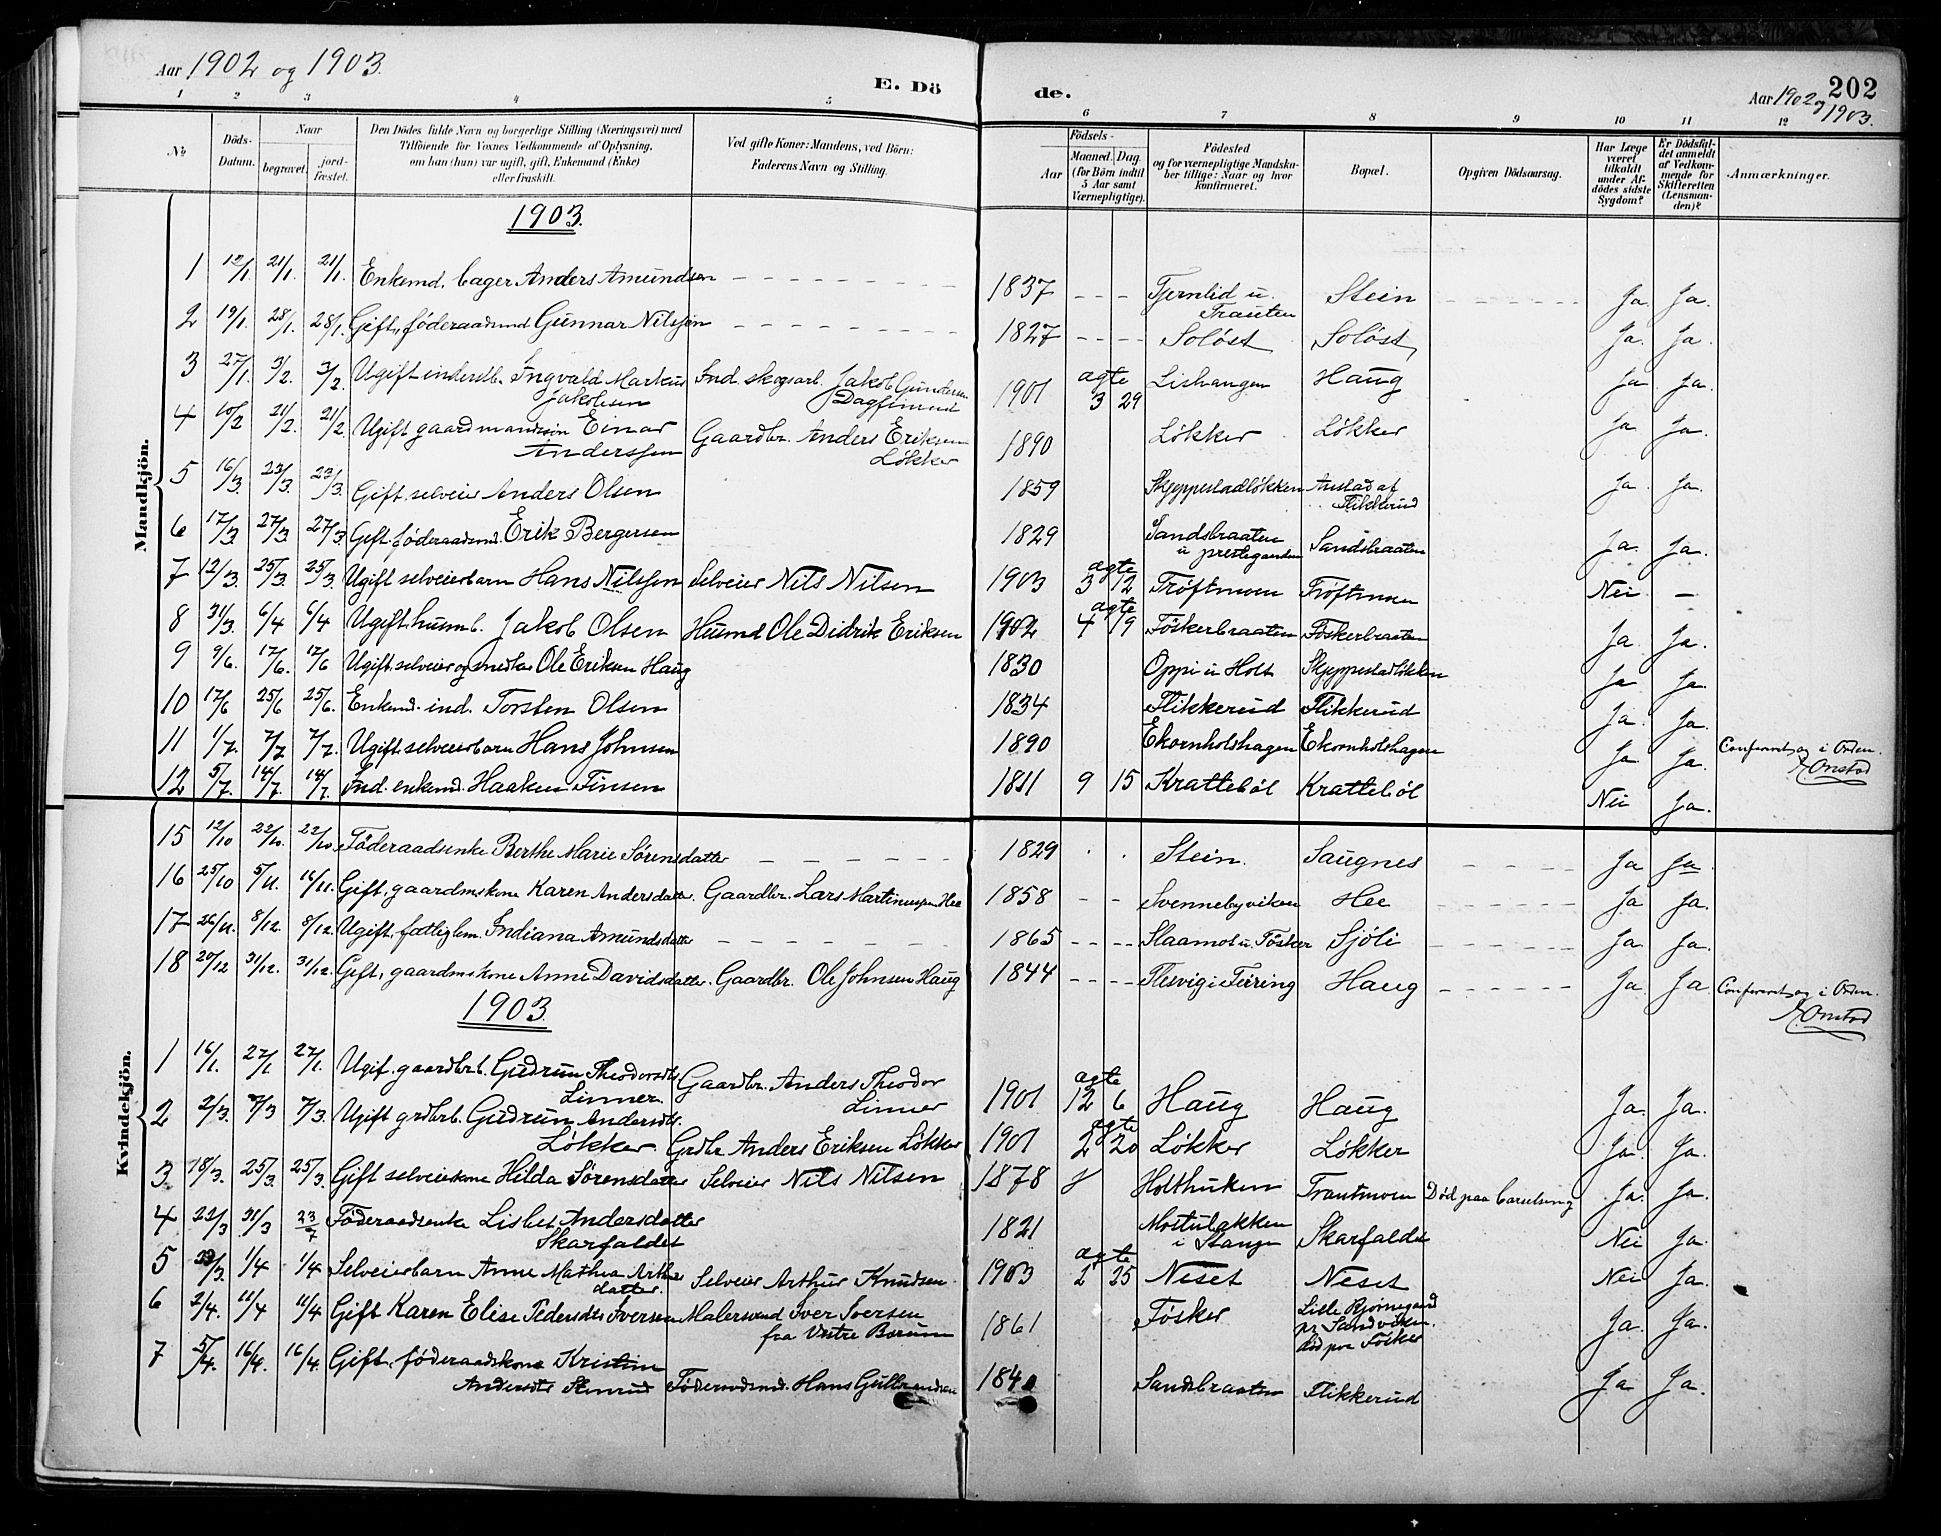 Aar 1902 og 1903.
E. Dö de.
Aar 1902 og 1903.
202
1 2 3 4 5 6 7 8 9 10 11 12
No
Döds-Datum.
Naar
begravet.
jordfæstet.
Den Dödes fulde Navn og borgerlige Stilling (Næringsvei) med
Tilföiende for Voxnes Vedkommende af Oplysning,
om han (hun) var ugift, gift, Enkemand (Enke)
eller fraskilt.
Ved gifte Koner: Mandens, ved Börn:
Faderens Navn og Stilling.
Födsels-
Aar
Maaned. Dag
(for Börn indtil
5 Aar samt
Værnepligtige).
Födested
og for værnepligtige Mandskaber tillige: Naar og hvor
konfirmeret.
Bopæl.
Opgiven Dödsaarsag.
Har Læge
været
tilkaldt
under Afdödes sidste
Sygdom?
Er Dödsfaldet anmeldt
af Vedkommende for
Skifteretten
(Lensmanden)?
Anmærkninger.
Mandkjön.
1903.
1 12/1. 21/1. 21/1. Enkemd. bager Anders Amundsen 1837 Tjernlid u. Trauten Stein Ja. Ja.
2 19/1. 28/1. 28/1. Gift, föderaadsmd Gunnar Nilssen 1827 Soløst Soløst Ja. Ja.
3 27/1. 3/2. 3/2. Ugift inderstb. Ingvald Markus Jakobsen Ind. skogsarb. Jakob Gundersen 1901 agte 3 29 Lishaugen Haug Ja. Ja.
4 10/2 21/2. 21/2 Ugift gaardmandssøn Einar Anderssen Gaardbr. Anders Eriksen Løkker 1890 Løkker Løkker Ja. Ja.
5 16/3. 23/3. 23/3. Gift, selveier Anders Olsen 1859 Skjeppestadløkken Flikkerud Ja. Ja.
6 17/3. 27/3. 27/3. Gift. føderaadsmd. Erik Bergersen 1829 Sandsbraaten u prestegaarden Sandsbraaten Ja. Ja.
7 12/3. 25/3. 25/3. Ugift selveierbarn Hans Nilssen Selveier Nils Nilsen 1903 agte 3 12 Trøftmoen Trøftmoen Nei –
8 31/3. 6/4 6/4 Ugift, husmb. Jakob Olsen Husmd Ole Didrik Eriksen 1902 agte 4 19 Föskerbraaten Föskerbraaten Ja. Ja.
9 9/6. 17/6. 17/6 Ugift. selveier og snedker Ole Eriksen Haug 1830 Oppi u Holt Skjeppestadløkken Ja Ja.
10 17/6 25/6 25/6. Enkemd. ind. Torsten Olsen 1834 Flikkerud Flikkerud Ja. Ja.
11 1/7. 7/7 7/7. Ugift. selveierbarn Hans Johnsen 1890 Ekornholshagen Ekornholshagen Ja Ja. Confereret og i Orden. Onstad
12 5/7. 14/7. 14/7. Ind. enkemd. Haaken Finsen 1811 9 15 Krattebøl Krattebøl Nei Ja.
Kvindekjön.
15 12/10 22/10. 22/10. Föderaadsenke Berthe Marie Sørensdatter 1829 Stein. Saugnes Ja Ja
16 25/10 5/11. 16/11. Gift, gaardmskone Karen Andersdatter. Gaardbr. Lars Martinussen Hee 1858 Svennebyviken Hee Ja Ja.
17 26/11. 8/12. 8/12. Ugift, fattiglem. Indiana Amundsdatter 1865 Slaamot u. Fösker Sjöli Ja Ja.
18 20/12 31/12. 31/12. Gift, gaardmskone Anne Davidsdatter. Gaardbr. Ole Johnsen Haug 1844 Flesvig i Feiring Haug Ja Ja Confereret og i Orden. Onstad
1903.
1 16/1. 27/1 27/1. Ugif. gaardbrb. Gudrun Theodorsdtr Linner. Gaardbr. Anders Theodor Linner 1901 agte 12 6 Haug Haug Ja. Ja.
2 2/3. 7/3 7/3 Ugift grdbrb. Gudrun Andersdtr. Løkker Grdbr Anders Eriksen Løkker 1901 agte 2 20 Løkker Løkker Ja. Ja.
3 18/3. 25/3. 25/3 Gift selveierkone Hilda Sørensdatter Selveier Nils Nilsen 1878 Holthuken Trautmoen Död paa barselseng Ja. Ja.
4 22/3 31/3 23/7 Föderaadsenke Lisbet Andersdatter Skarfaldet 1821 i Stange Skarfaldet Nei Ja.
5 1/4 1/4 Selveierbarn Anne Mathea Arthursdatter. Selveier Arthur Knudsen 1903 agte 2 25 Neset Neset Nei Ja.
6 2/4. 11/4 11/4 Gift Karen Elise Pedersdtr Iversen Malersvend Iver Iversen fra Vestre Bærum 1861 Føsker Lille Bjørnegaard pr Sandviken. död paa Fösker Ja. Ja.
7 5/4. 16/4. 16/4. Gift, føderaadskone Kristine Andersdtr Stenrud Föderaadsmd. Hans Gulbrandsen Sandsbraaten Flikkerud Ja Ja.